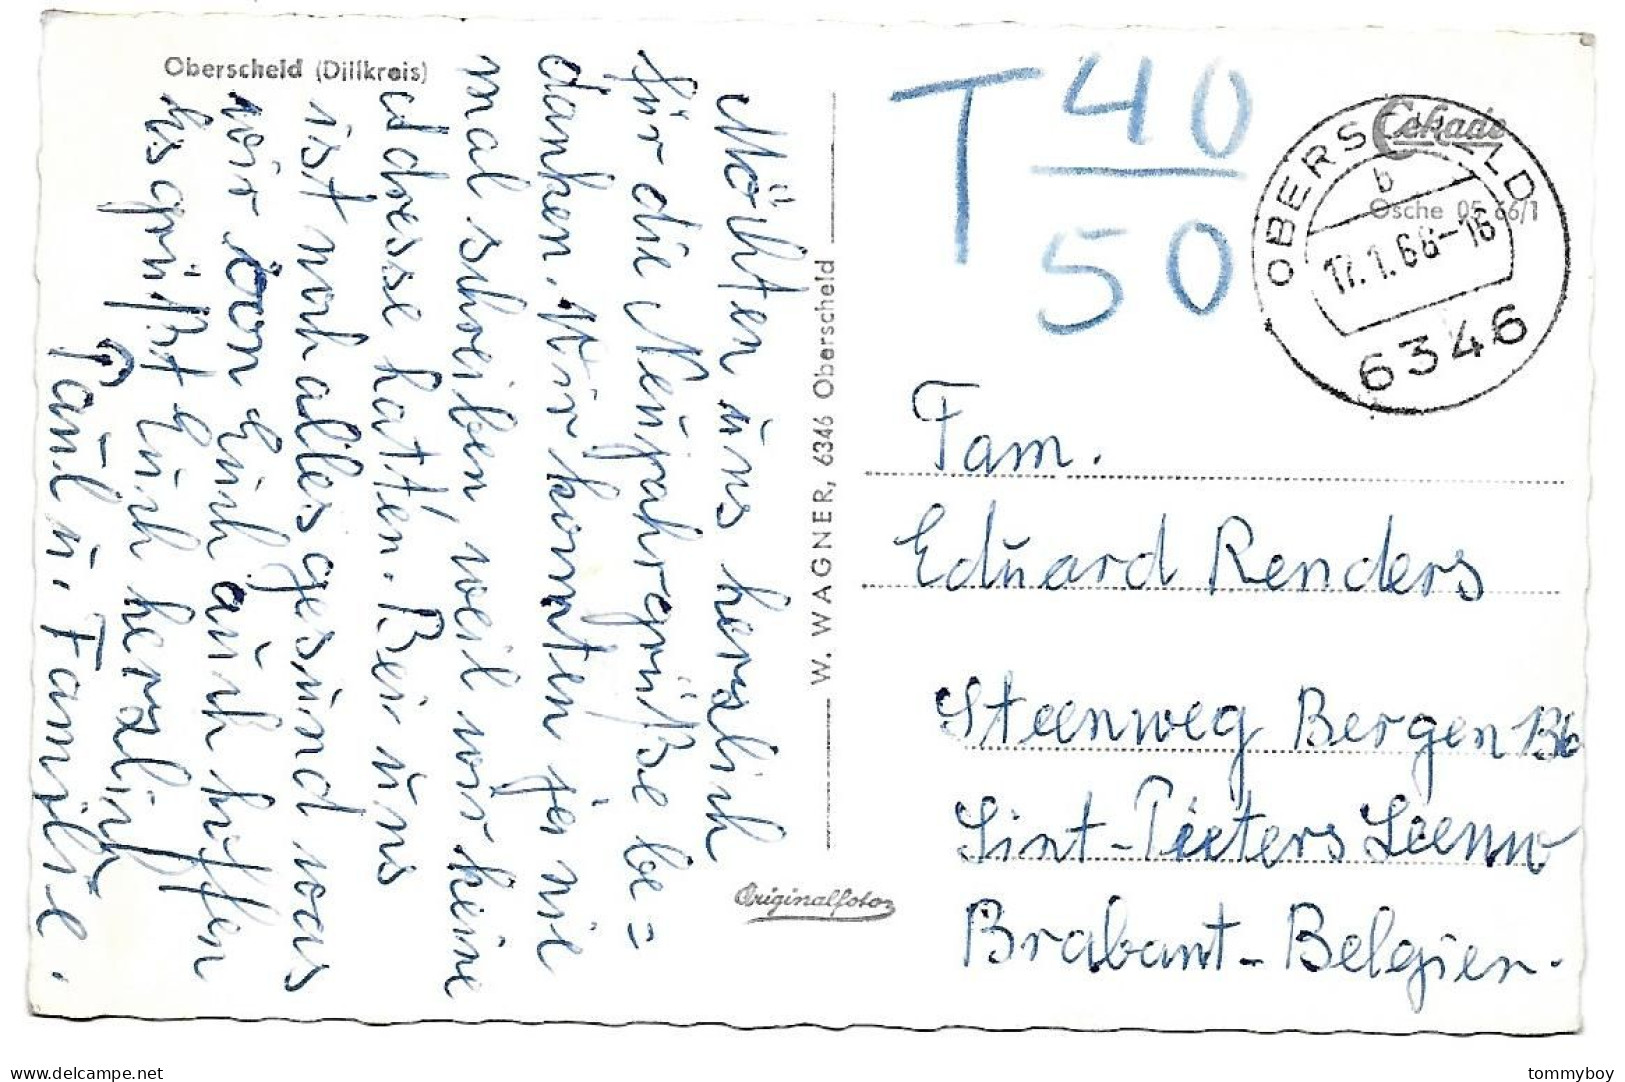 Oberscheld (Dillkreis)
Möchten uns herzlich
für die Neujahrsgrüße be=
danken. Wir konnten ja nie
mal schreiben, weil wir keine
Adresse hatten. Bei uns
ist noch alles gesund was
wir von Euch auch hoffen
Es grüßt Euch herzlich
Paul u. Familie.
W. WAGNER, 6346 Oberscheld
Originalfoto
T 40
50
Cekade
Osche 05 66/1
OBERSCHELD
b
17.1.68-16
6346
Fam.
Eduard Renders
Steenweg Bergen 136
Sint-Pieters Leeuw
Brabant-Belgien.
delcampe.net
tommyboy